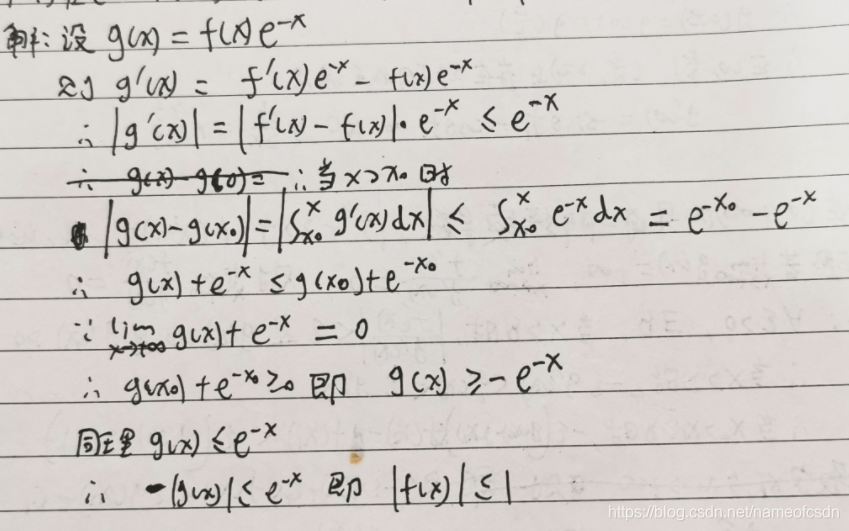 解: 设 g(x) = f(x)e^{-x}
则 g'(x) = f'(x)e^{-x} - f(x)e^{-x}
∴ |g'(x)| = |f'(x) - f(x)|·e^{-x} ≤ e^{-x}
∴ g(x)-g(0)= ∴当 x>x₀ 时
|g(x)-g(x₀)| = |∫_{x₀}^{x} g'(x)dx| ≤ ∫_{x₀}^{x} e^{-x}dx = e^{-x₀} - e^{-x}
∴ g(x)+e^{-x} ≤ g(x₀)+e^{-x₀}
∵ lim_{x→+∞} g(x)+e^{-x} = 0
∴ g(x₀)+e^{-x₀} ≥0 即 g(x) ≥ -e^{-x}
同理 g(x) ≤ e^{-x}
∴ |g(x)| ≤ e^{-x} 即 |f(x)| ≤ 1
https://blog.csdn.net/nameofcsdn